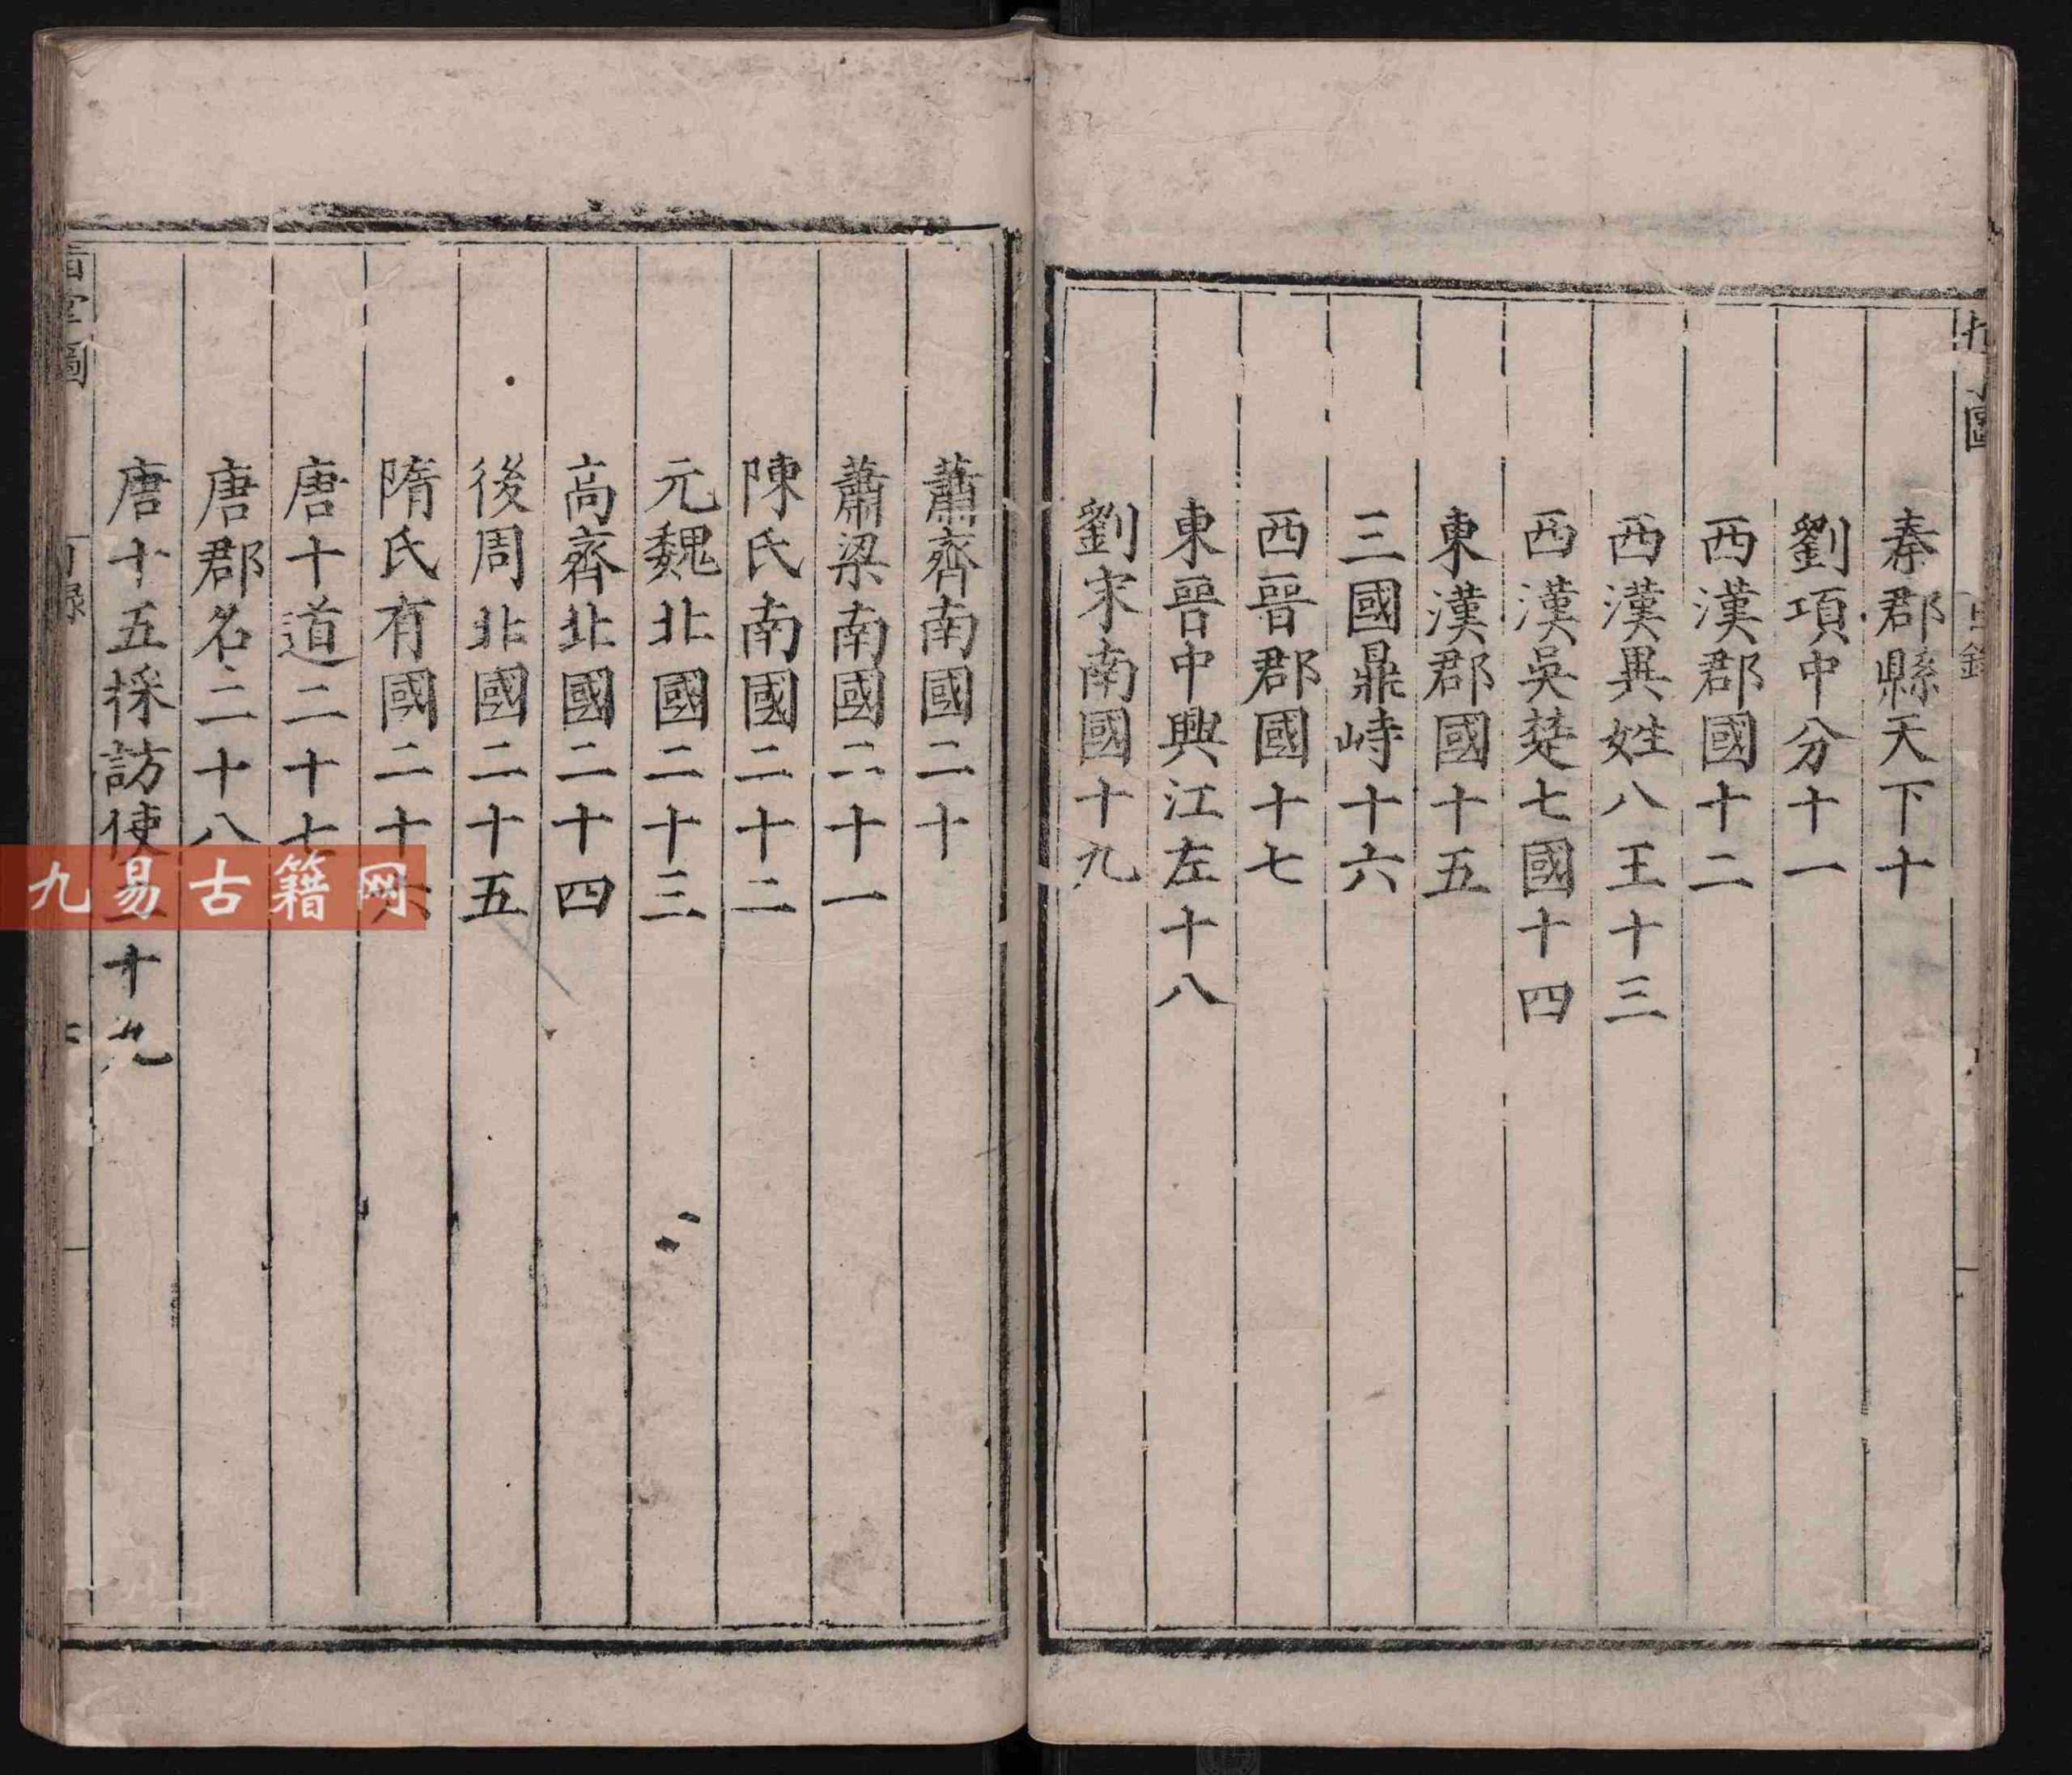 秦郡縣天下十
劉項中分十一
西漢郡國十二
西漢異姓八王十三
西漢吳楚七國十四
東漢郡國十五
三國鼎峙十六
西晉郡國十七
東晉中興江左十八
劉宋南國十九
蕭齊南國二十
蕭梁南國二十一
陳氏南國二十二
元魏北國二十三
高齊北國二十四
後周北國二十五
隋氏有國二十六
唐十道二十七
唐郡名二十八
唐十五採訪使二十九
九易古籍网